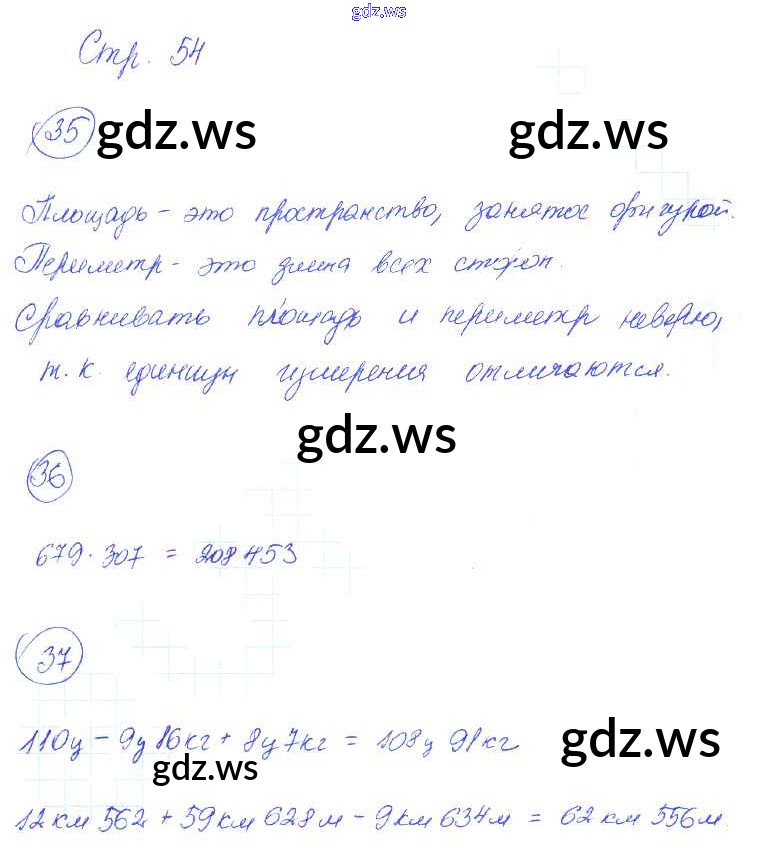 gdz.ws
Стр. 54
35 gdz.ws gdz.ws
Площадь - это пространство, занятое фигурой.
Периметр - это длина всех сторон.
Сравнивать площадь и периметр неверно,
т.к. единицы измерения отличаются.
gdz.ws
36
679 · 307 = 208 453
37
110ц - 9ц 16кг + 8ц 7кг = 108ц 91кг
gdz.ws gdz.ws
12км 562 + 59км 628м - 9км 634м = 62км 556м.